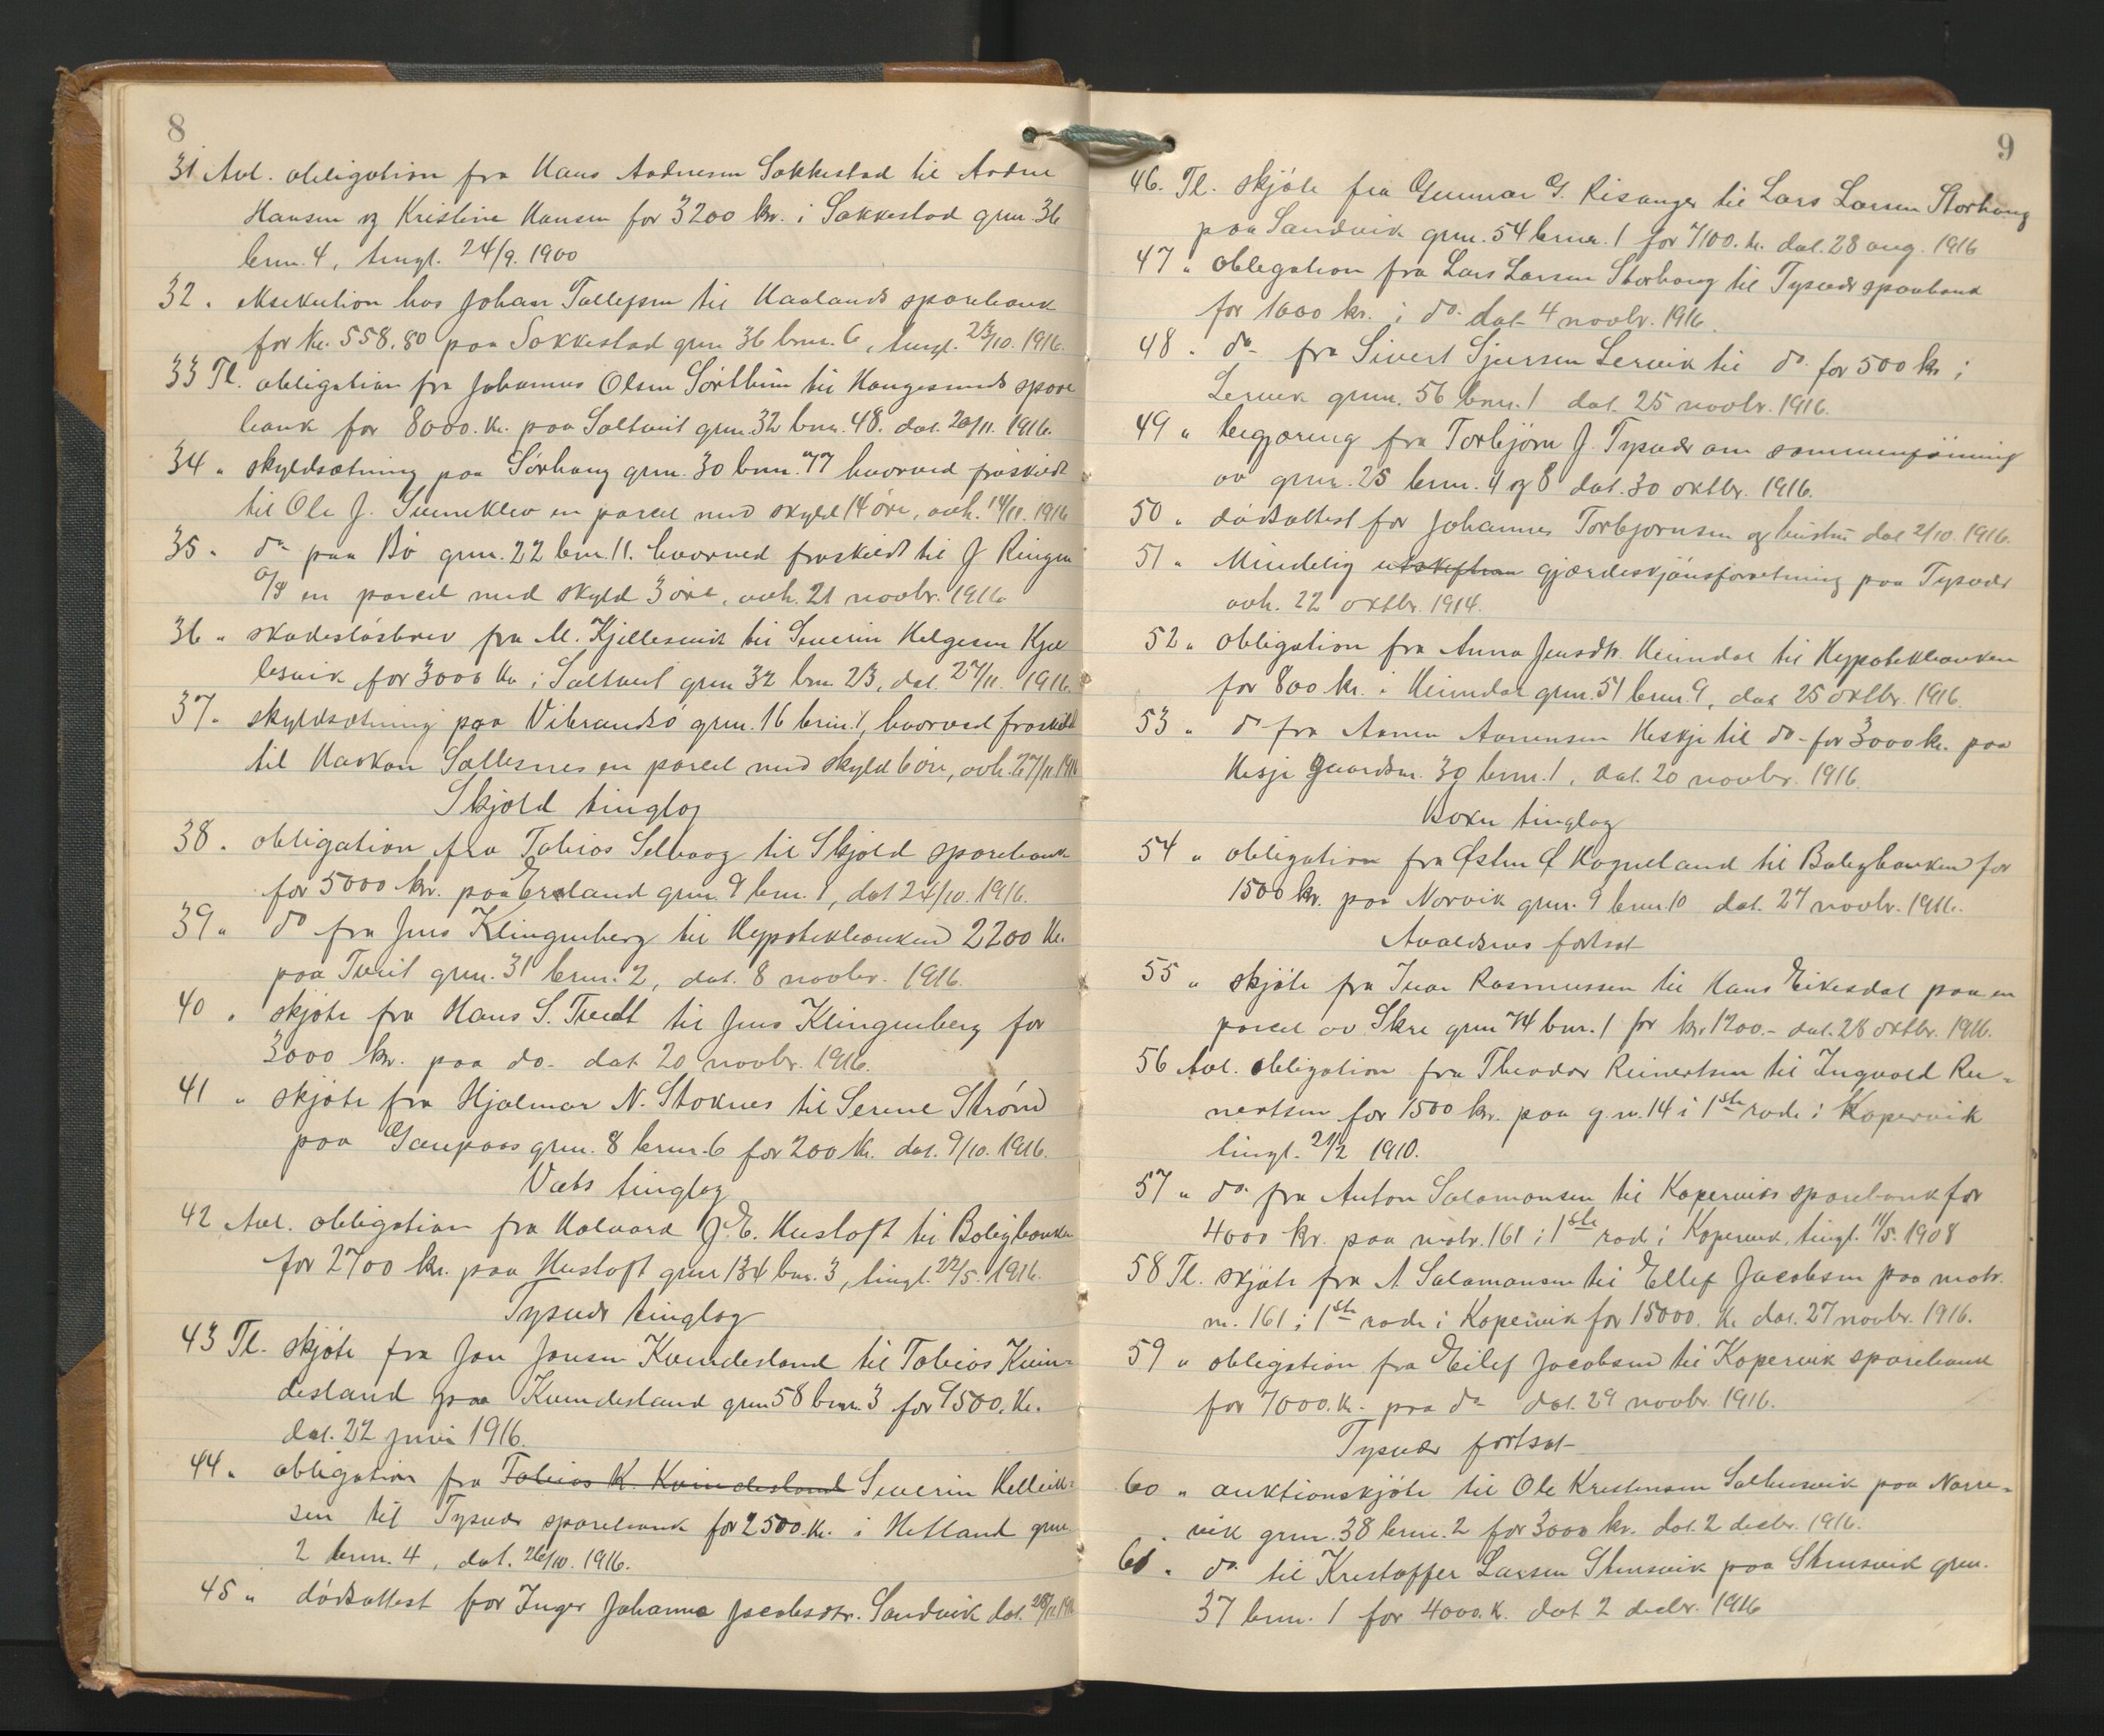 8
31 Avl. obligation fra Hans Aadnesen Sakkestad til Aadne
Hansen og Kristine Hansen for 3200 kr. i Sakkestad grnr. 36
brnr. 4, tingl. 24/9. 1900
32. eksekution hos Johan Tollefsen til Haalands sparebank
for kr. 558,80 paa Sakkestad grnr 36 brnr. 6, tingl. 23/10. 1916.
33 Tl. obligation fra Johannes Olsen Sörtheim til Haugesunds spare
bank for 8000. kr. paa Saltveit grnr. 32 brnr. 48. dat. 20/11. 1916.
34 " skyldsætning paa Sörhaug grnr. 30 brnr. 77 hvorved fraskildt
til Ole J. en parcel med skyld 14 öre, avh. 14/11. 1916
35 " do paa Bö grnr. 22 brnr. 11. hvorved fraskildt til J Ringen
A/S en parcel med skyld 3 öre, avh. 21 novbr. 1916
36 " skadeslösbrev fra M. Kjellesvik til Severin Helgesen Kjel
lesvik for 3000 kr i Saltveit grnr 32 brnr 23, dat. 27/11. 1916.
37 " skyldsætning paa Vibrandsö grnr. 16 brnr. 1, hvorved fraskildt
til Haakon Sallesnes en parcel med skyld 6 öre, avh. 27/11 1916
Skjold tinglag
38 " obligation fra Tobias Selvaag til Skjold sparebank
for 5000 kr. paa Erland grnr. 9 brnr. 1, dat 24/10. 1916.
39 " do fra Jens Klingenberg til Hypotekbanken 2200 kr.
paa Tveit grnr. 31 brnr. 2, dat. 8 novbr. 1916.
40 " skjöte fra Hans S. Tveit til Jens Klingenberg for
3000 kr. paa do- dat 20 novbr. 1916.
41 " skjöte fra Hjalmar N. Stoknes til Serine Strönd
paa Gaupaas grnr. 8 brnr. 6 for 200 kr. dat. 9/10. 1916.
Vats tinglag
42 Avl. obligation fra Halvard J. E. Hustoft til Boligbanken
for 2700 kr. paa Hustoft grnr 134 bnr. 3, tingl. 22/5. 1916.
Tysvær tinglag
43 Tl. skjöte fra Jon Jonsen Kvindesland til Tobias Kvin-
desland paa Kvindesland grnr 58 brnr. 3 for 9500. kr.
dat. 22 juni 1916.
44 " obligation fra Tobias K. Kvindesland Severin Helliek-
sen til Tysvær sparebank for 2500. kr. i Hetland grnr
2 brnr. 4, dat. 26/10. 1916.
45 " dödsattest for Inger Johanna Jacobsdtr. Sandvik dat. 28/11 1916
9
46. Tl. skjöte fra Gunnar G. Risanger til Lars Larsen Storhaug
paa Sandvik grnr. 54 brnr. 1 for 7100. kr. dat. 28 aug. 1916
47 " obligation fra Lars Larsen Storhaug til Tysvær sparebank
for 1000 kr. i do. dat 4 novbr. 1916.
48 " do- fra Sivert Sjursen Lervik til do. for 500 kr i
Lervik grnr. 56 brnr. 1 dat. 25 novbr. 1916.
49 " begjæring fra Torbjörn J. Tysvær om sammenföining
av grnr. 25 brnr. 4 og 8 dat. 30 oktbr. 1916.
50 " dödsattest for Johannes Torbjornsen og hustru dat 2/10. 1916.
51 " Mindelig utskiftnin gjærdeskjönsforretning paa Tysvær
avh. 22 oktbr. 1914.
52 " obligation fra Anna Jensdtr. Heimdal til Hypotekbanken
for 800 kr. i Heimdal grnr. 51 brnr. 9, dat 25 oktbr. 1916.
53 " do fra Aamen Aamensen Heskje til do- for 3000 kr. paa
Hesje gaardsnr. 30 brnr. 1. dat. 20 novbr. 1916.
Bokn tinglag
54 " obligation fra Østen Ø Hognaland til Boligbanken for
1500 kr. paa Norvik grnr. 9 brnr 10 dat. 27 novbr. 1916.
Avaldsnes fortsat
55 " skjöte fra Ivar Rasmussen til Hans Eikesdal paa en
parcel av Skre grnr 74 bnr. 1 for kr. 1200.- dat. 28 oktbr. 1916.
56 Avl. obligation fra Theodor Reinertsen til Ingvald Rei-
nertsen for 1500 kr. paa g. nr. 14 i 1ste rode i Kopervik
tingl. 21/2 1910.
57 " do. fra Anton Salamonsen til Koperviks sparebank for
4000 kr. paa matr. 161 i 1ste rod. i Kopervik, tingl. 11/5. 1908
58 Tl. skjöte fra A Salamonsen til Ellef Jacobsen paa matr.
nr. 161 i 1ste rode i Kopervik for 15000. kr dat. 27 novbr. 1916.
59 " obligation fra Eilef Jacobsen til Kopervik sparebank
for 7000. kr. paa do dat. 29 novbr 1916.
Tysvær fortsat
60 " auktionskjöte til Ole Kristensen Salhusvik paa Narre-
vik grnr. 38 brnr. 2 for 3000 kr. dat. 2 decbr. 1916.
61 " do. til Kristoffer Larsen Stensvik paa Stensvik grnr.
37 brnr. 1 for 4000. kr. dat 2 decbr. 1916